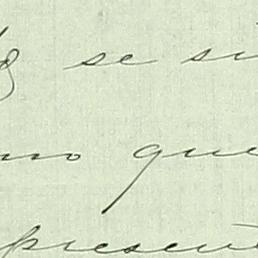 se si
mo que
present